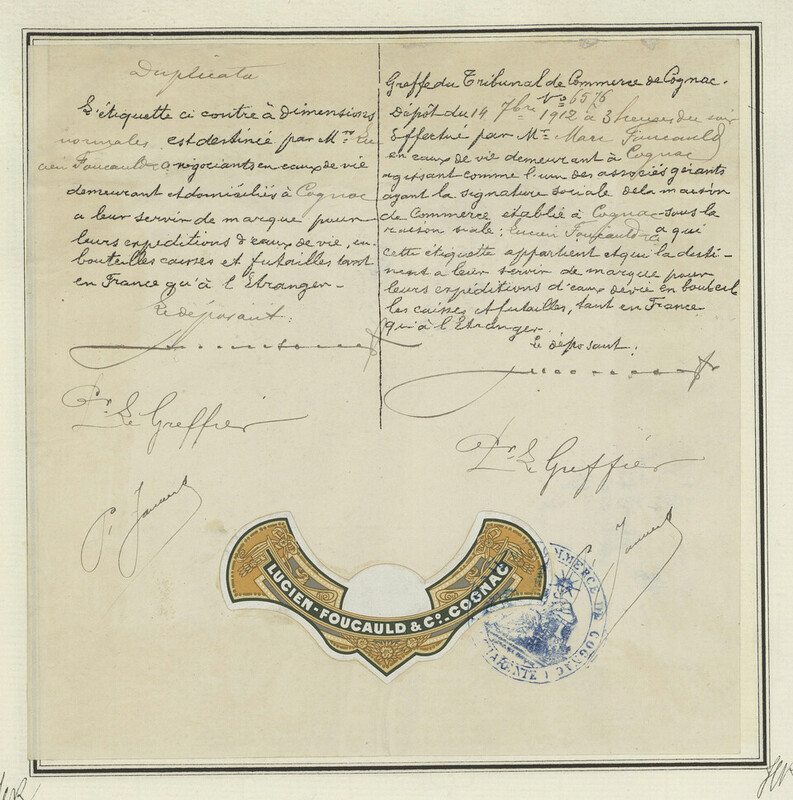 Duplicata
L'étiquette ci contre à dimensions
normales est destinée par Mrs Lu
cien Foucauld & Co négociants en eaux de vie
demeurant et domiciliés à Cognac
a leur servir de marque pour
leurs expéditions d'eaux de vie, en
bouteilles caisses et futailles tant
en France qu'à l'Etranger.
Le déposant:
Pr Le Greffier
Greffe du Tribunal de Commerce de Cognac.
No 6576
Dépôt du 14 7bre 1912 à 3 heures du soir
Effectué par Mr Marc Foucauld
en eaux de vie demeurant à Cognac
agissant comme l'un des associés gérants
ayant la signature sociale de la maison
de Commerce établie à Cognac sous la
raison siale: Lucien Foucauld & Co a qui
cette étiquette appartient et qui la desti-
nent a leur servir de marque pour
leurs expéditions d'eaux de vie en bouteil
les caisses et futailles, tant en France
qu'à l'Etranger.
Le déposant:
Pr Le Greffier
LUCIEN-FOUCAULD & Co. COGNAC
COMMERCE DE COGNAC